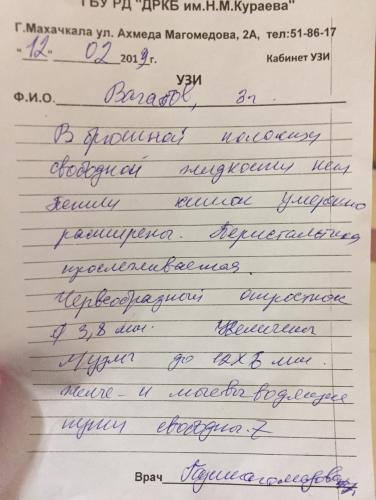 ГБУ РД "ДРКБ им.Н.М.Кураева"
Г.Махачкала ул. Ахмеда Магомедова, 2А, тел:51-86-17
"12" 02 2019г. Кабинет УЗИ
УЗИ
Ф.И.О. Вагабов, 3г.
В брюшной полости
свободной жидкости нет
Петли кишок умеренно
расширены. Перистальтика
прослеживается.
Червеобразный отросток
ф 3,8 мм. Увеличены
до 12х6 мм.
Желче- и мочевыводящие
пути свободны.
Врач